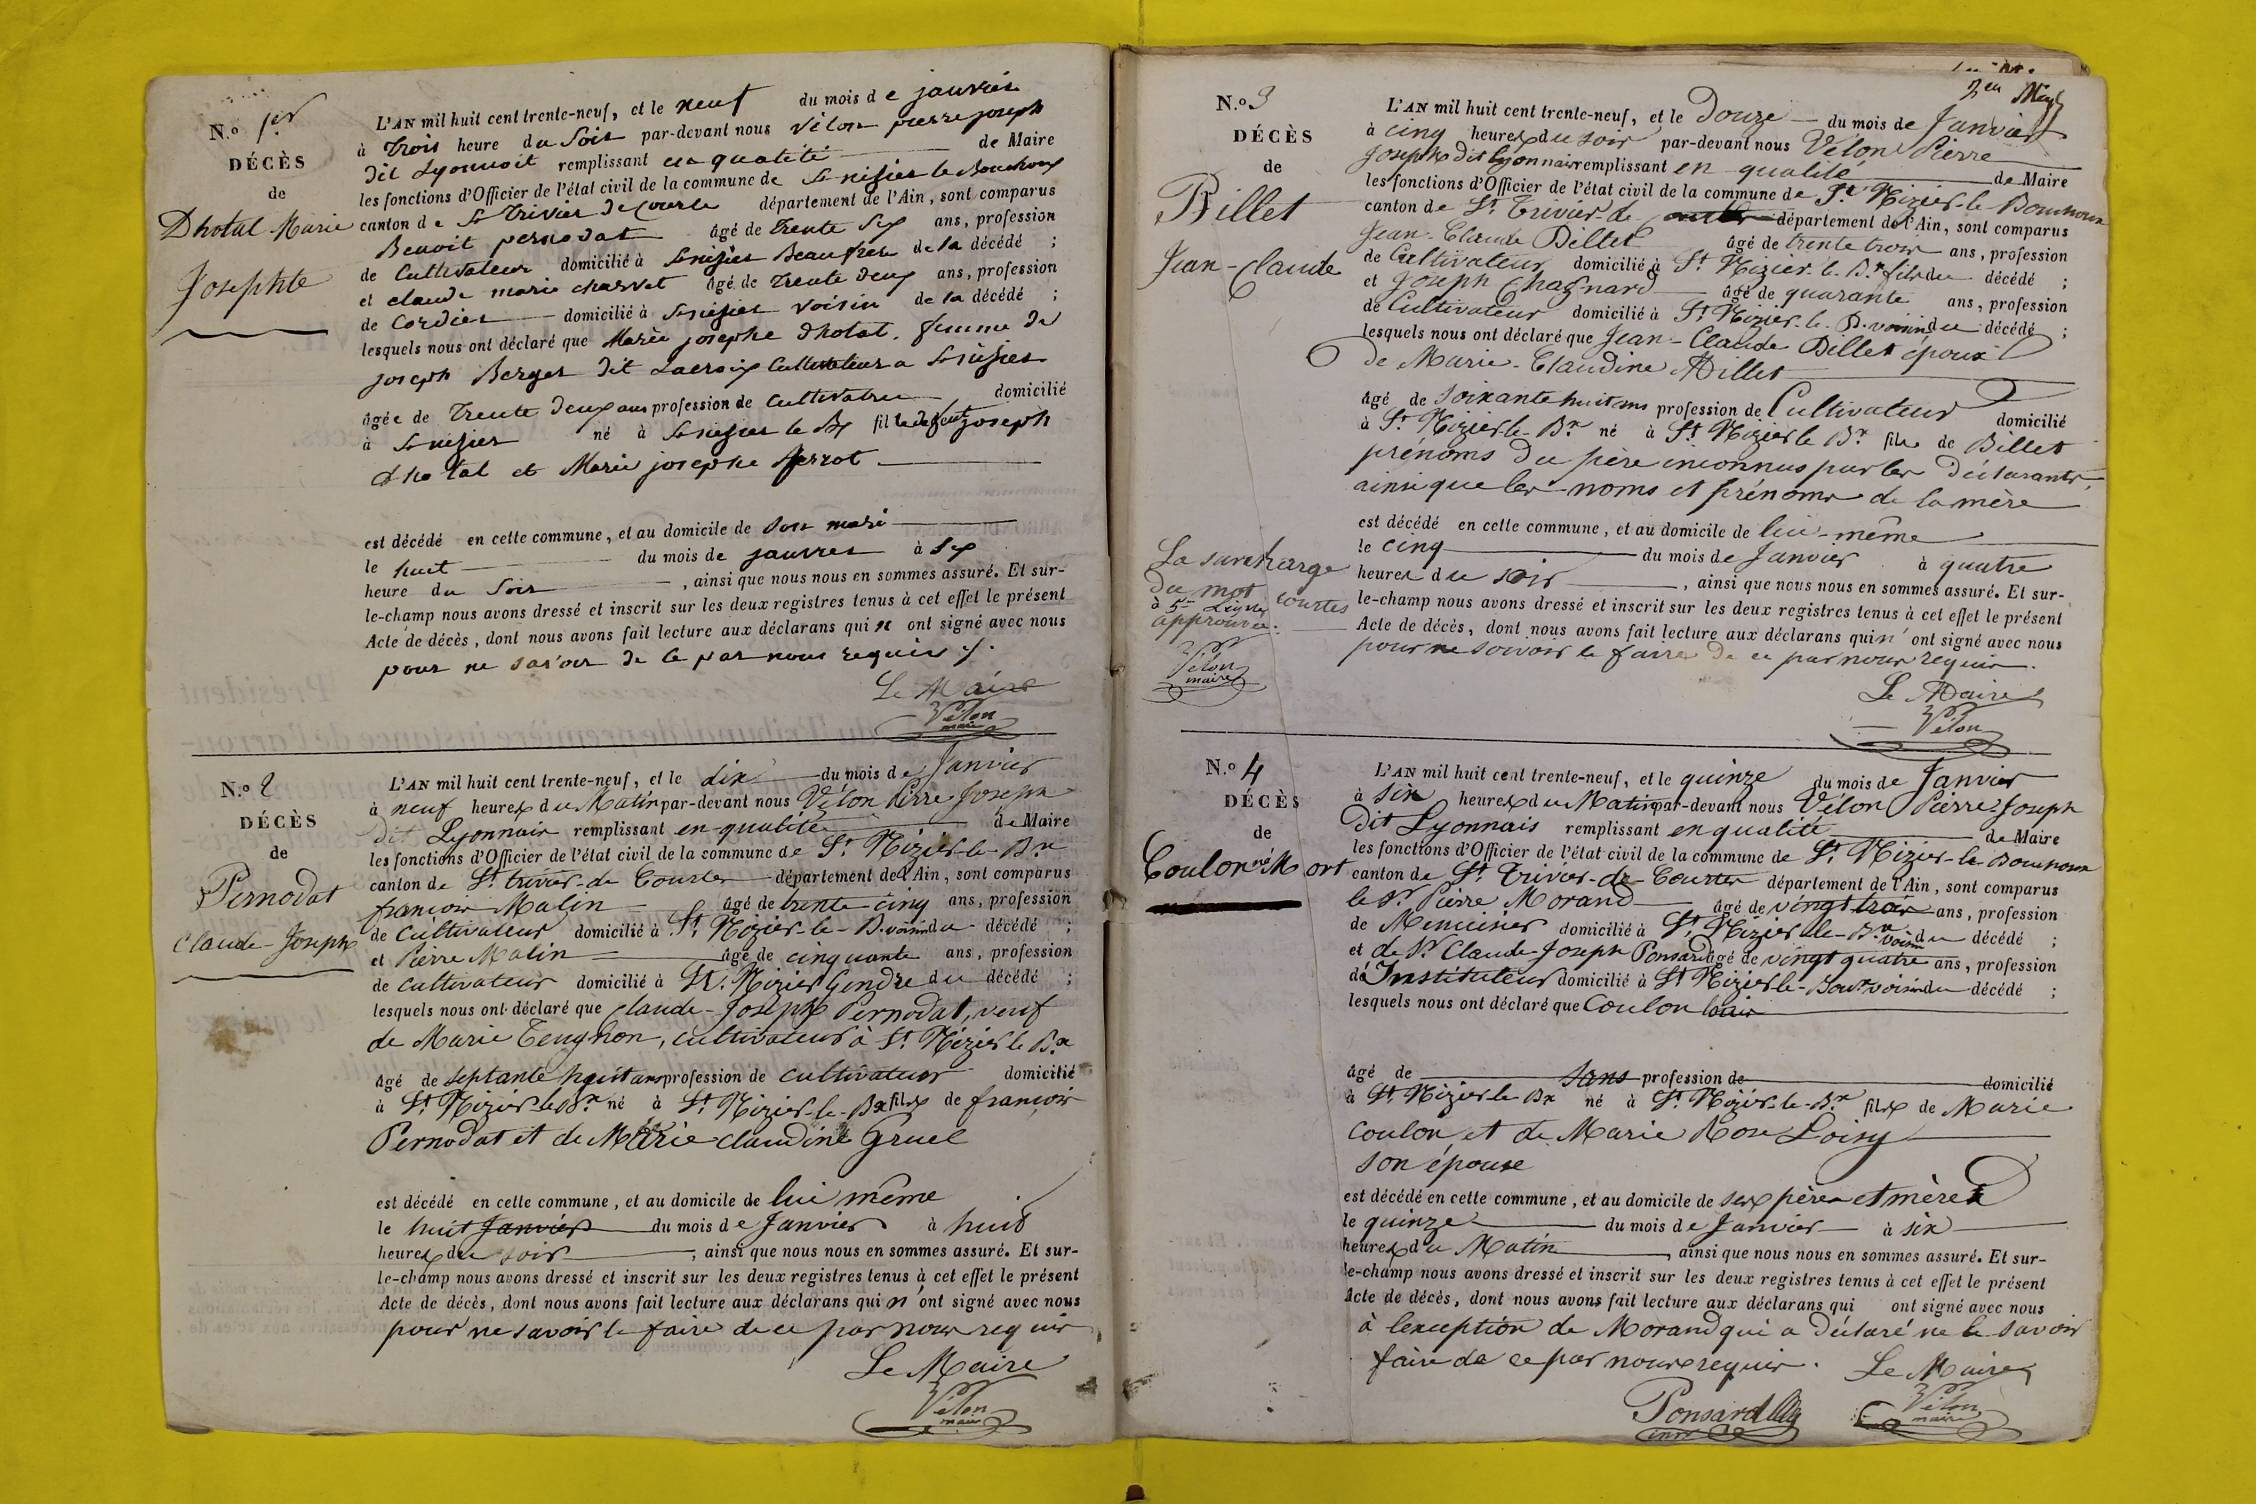 N.º 1er
DÉCÈS
de
Dhotal Marie
Josephte
L'AN mil huit cent trente-neuf, et le neuf du mois de janvier
à trois heure du Soir par-devant nous vélon pierre joseph
dit Lyonnoit remplissant en qualité de Maire
les fonctions d'Officier de l'état civil de la commune de St nisier le Bouchoux
canton de St trivier de Courte département de l'Ain, sont comparus
Benoit pernodat âgé de trente Six ans, profession
de Cultivateur domicilié à St nisier Beaufrere de la décédé ;
et claude marie charvet âgé de trente deux ans, profession
de Cordier domicilié à St nisier voisin de la décédé ;
lesquels nous ont déclaré que Marie josephe dhotal, femme de
joseph Berger dit Lacroix Cultivateur a St nisier
âgée de trente deux ans profession de Cultivatrice domicilié
à St nisier né à St nisier le Bx fille de feu joseph
dhotal et Marie josephe perrot
est décédé en cette commune, et au domicile de son mari
le huit du mois de janvier à Six
heure du Soir , ainsi que nous nous en sommes assuré. Et sur-
le-champ nous avons dressé et inscrit sur les deux registres tenus à cet effet le présent
Acte de décès, dont nous avons fait lecture aux déclarans qui n ont signé avec nous
pour ne savoir de ce par nous requis ./.
Le Maire
Vélon
maire
N.º 2
DÉCÈS
de
Pernodat
Claude-Joseph
L'AN mil huit cent trente-neuf, et le dix du mois de Janvier
à neuf heures du Matin par-devant nous Vélon Pierre Joseph
dit Lyonnais remplissant en qualité de Maire
les fonctions d'Officier de l'état civil de la commune de St Nizier-le-Bx
canton de St trivier-de Courtes département de l'Ain, sont comparus
françois Matin âgé de trente cinq ans, profession
de Cultivateur domicilié à St Nizier-le-B. voisin du décédé ;
et Pierre Matin âgé de cinquante ans, profession
de cultivateur domicilié à St Nizier Gendre du décédé ;
lesquels nous ont déclaré que Claude-Joseph Pernodat, veuf
de Marie Tenghon, cultivateur à St Nizier le Bx
âgé de septante huit ans profession de cultivateur domicilié
à St Nizier le Bx né à St Nizier-le-Bx fils de françois
Pernodat et de Marie claudine Gruel
est décédé en cette commune, et au domicile de lui même
le huit Janvier du mois de Janvier à huit
heures du soir , ainsi que nous nous en sommes assuré. Et sur-
le-champ nous avons dressé et inscrit sur les deux registres tenus à cet effet le présent
Acte de décès, dont nous avons fait lecture aux déclarans qui n'ont signé avec nous
pour ne savoir le faire de ce par nous requis
Le Maire
Vélon
maire
N.º 3
DÉCÈS
de
Billet
Jean-Claude
L'AN mil huit cent trente-neuf, et le Douze du mois de Janvier
à cinq heures du soir par-devant nous Vélon Pierre
Joseph dit lyonnais remplissant en qualité de Maire
les fonctions d'Officier de l'état civil de la commune de St Nizier-le-Bouchoux
canton de St Trivier-de courtes département de l'Ain, sont comparus
Jean-Claude Billet âgé de trente trois ans, profession
de Cultivateur domicilié à St Nizier-le-Bx fils du décédé ;
et Joseph Chagnard âgé de quarante ans, profession
de Cultivateur domicilié à St Nizier-le-B. voisin du décédé ;
lesquels nous ont déclaré que Jean-Claude Billet époux
de Marie-Claudine Millet
âgé de soixante huit ans profession de Cultivateur domicilié
à St Nizier-le-Bx né à St Nizier le Bx fils de Billet
prénoms du père inconnus par les déclarants,
ainsi que les noms et prénoms de la mère
est décédé en cette commune, et au domicile de lui-même
le cinq du mois de Janvier à quatre
heures du soir , ainsi que nous nous en sommes assuré. Et sur-
le-champ nous avons dressé et inscrit sur les deux registres tenus à cet effet le présent
Acte de décès, dont nous avons fait lecture aux déclarans qui n'ont signé avec nous
pour ne savoir le faire de ce par nous requis.
La surcharge
du mot courtes
à 5me Ligne
approuvée.
Vélon
maire
Le Maire
Vélon
N.º 4
DÉCÈS
de
Coulon né Mort
L'AN mil huit cent trente-neuf, et le quinze du mois de Janvier
à six heures du Matin par-devant nous Vélon Pierre-Joseph
dit Lyonnais remplissant en qualité de Maire
les fonctions d'Officier de l'état civil de la commune de St Nizier-le-Bouchoux
canton de St Trivier-de-Courtes département de l'Ain, sont comparus
le Sr Pierre Morand âgé de vingt trois ans, profession
de Menuisier domicilié à St Nizier-le-Bx voisin du décédé ;
et de Sr Claude-Joseph Ponsard âgé de vingt quatre ans, profession
d'Instituteur domicilié à St Nizier le-Boux voisin du décédé ;
lesquels nous ont déclaré que Coulon
âgé de sans profession de domicilié
à St Nizier-le Bx né à St Nizier-le-Bx fils de Marie
Coulon et de Marie Rose Loisy
son épouse
est décédé en cette commune, et au domicile de ses père et mère
le quinze du mois de Janvier à six
heures du Matin , ainsi que nous nous en sommes assuré. Et sur-
le-champ nous avons dressé et inscrit sur les deux registres tenus à cet effet le présent
Acte de décès, dont nous avons fait lecture aux déclarans qui ont signé avec nous
à l'exception de Morand qui a déclaré ne le savoir
faire de ce par nous requis.
Le Maire
Ponsard
Vélon
maire